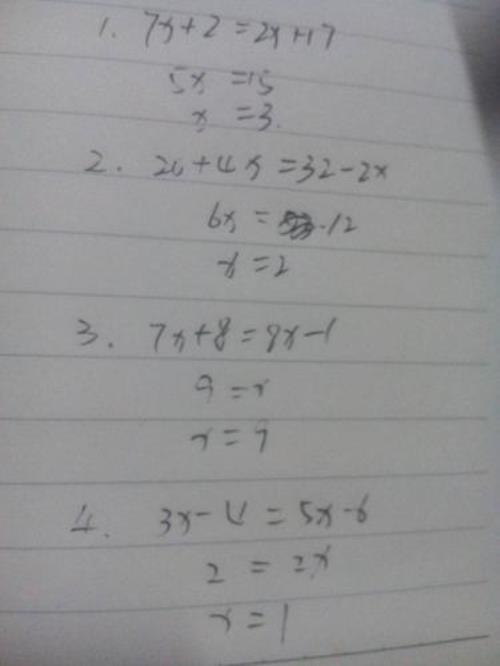 1. 7x+2=2x+17
5x=15
x=3.
2. 20+4x=32-2x
6x=12
x=2
3. 7x+8=8x-1
9=x
x=9
4. 3x-4=5x-6
2=2x
x=1